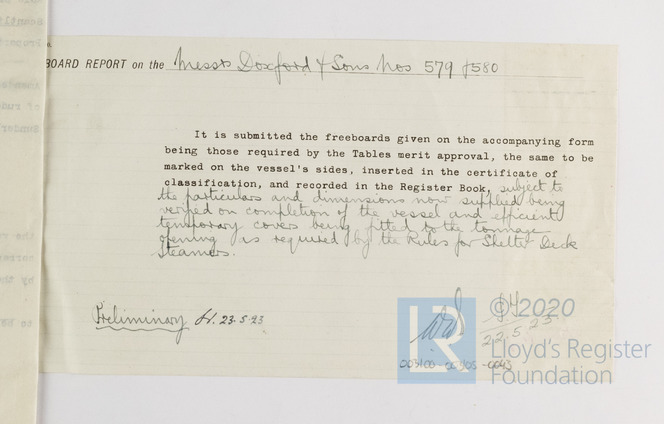 BOARD REPORT on the Messrs Doxford & Sons Nos 579 & 580
It is submitted the freeboards given on the accompanying form
being those required by the Tables merit approval, the same to be
marked on the vessel's sides, inserted in the certificate of
classification, and recorded in the Register Book, subject to
the particulars and dimensions now supplied being
verified on completion of the vessel and efficient
temporary covers being fitted to the tonnage
opening as required by the Rules for Shelter Deck
Steamers.
Preliminary 23.5.23
22.5.23
003100-003105-0043
LR
© 2020
Lloyd's Register
Foundation